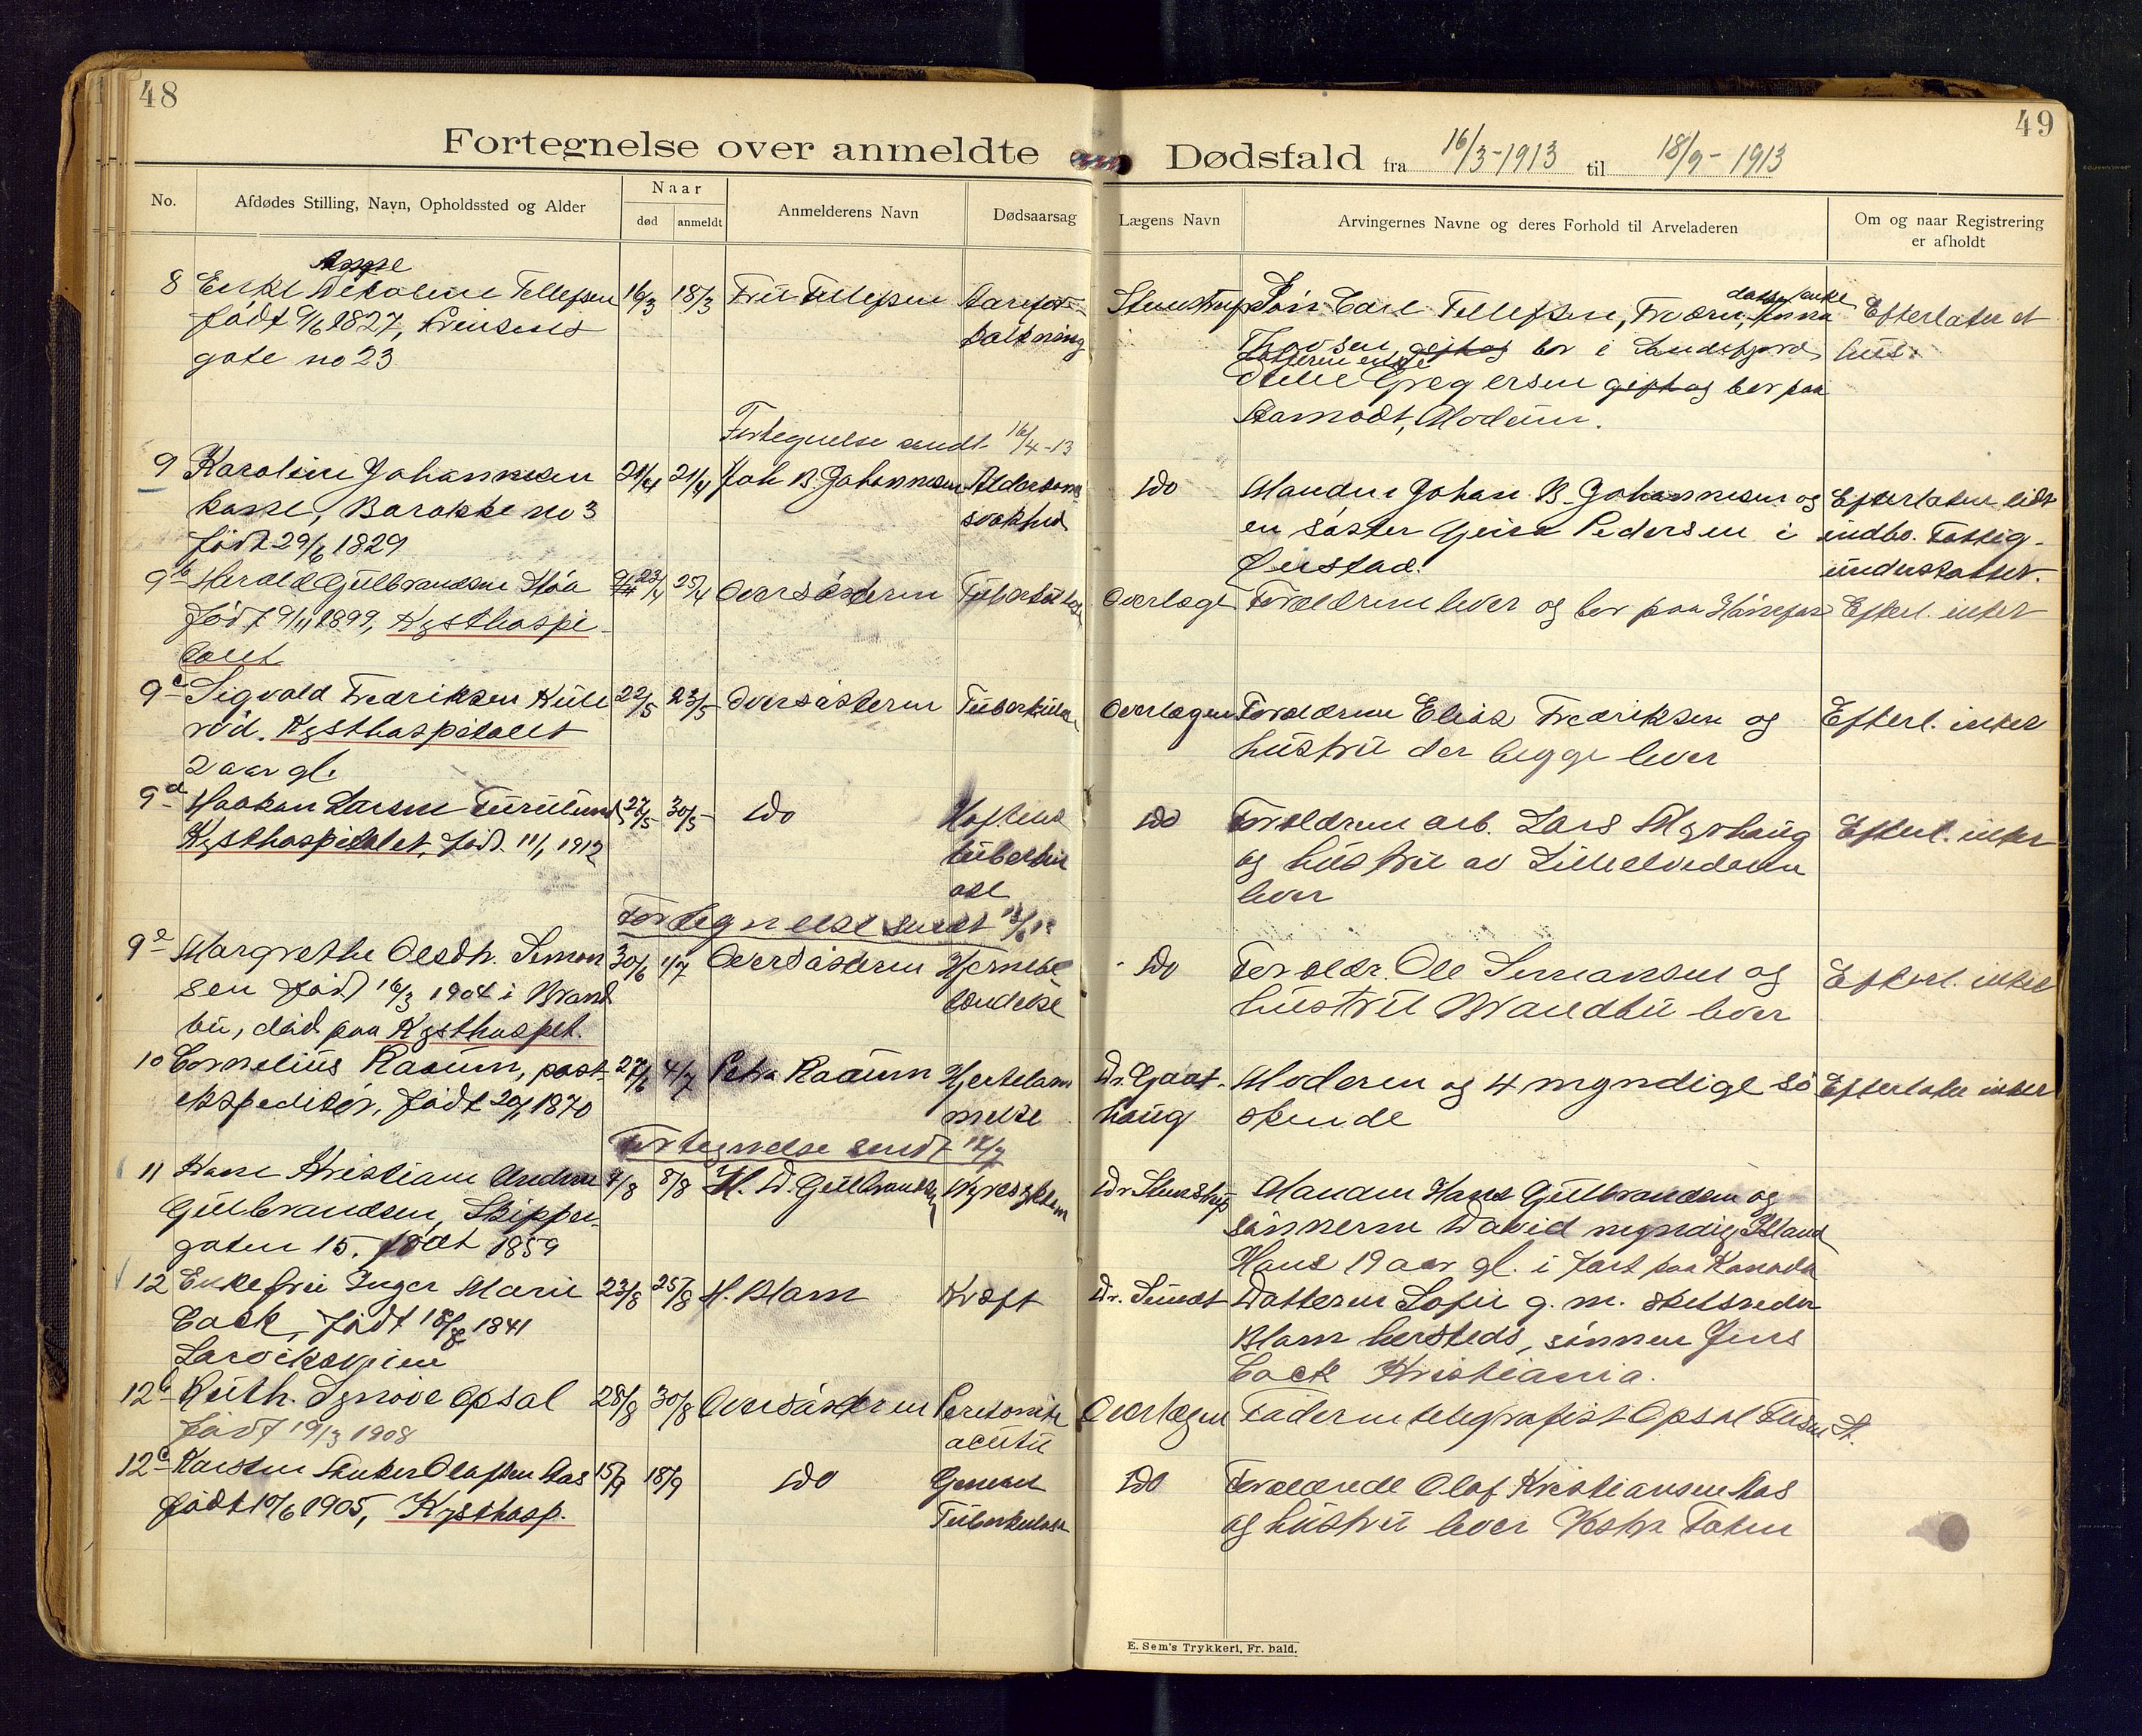 48
Fortegnelse over anmeldte
No.
Afdødes Stilling, Navn, Opholdssted og Alder
Naar
død
anmeldt
Anmelderens Navn
Dødsaarsag
8 Enke Tellefsen 16/3 18/3 Fru Tellefsen
født 9/6 1827, Prinsens
gate no 23
Fortegnelse sendt 16/4-13
9 Karoline Johannesen 21/4 21/4 Joh B. Johannesen Alderdoms
kone, Barakke no 3 svakhed
født 29/6 1829
9b Harald Gulbrandsen Moa 23/4 25/4 Oversøsteren Tuberkulose
født 9/11 1899, Kysthospi-
talet
9c Sigvald Fredriksen Hulle 22/5 23/5 Oversøsteren Tuberkulose
rød. Kysthospitalet
2 aar gl.
9d Haakon Larsen Furulund 27/5 30/5 Do Hofteled
Kysthospitalet, født 11/1 1912 tuberkul
ose
Fortegnelse sendt
9e Margrethe Olesdtr. Simon 30/6 1/7 Oversøsteren Hjernebe
sen født 16/3 1904 i Brand tændelse
bu, død paa Kysthospet.
10 Cornelius Raaum, post- 27/6 4/7 Petra Raaum Hjertelam
ekspeditør, født 20/1 1870 melse
Fortegnelse sendt 12/7
11 Kone Kristiane Andrea 7/8 8/8 H. D. Gulbrandsen Nyresygdom
Gulbrandsen, Skipper-
gaten 15. født 1859
12 Enkefru Inger Marie 23/8 25/8 H. Blam Kræft
Cock, født 18/8 1841
Larviksveien
12b Ruth Synnøve Opsal 28/8 30/8 Oversøsteren Peritonite
født 19/3 1908 acuta
12c Karsten Olafsen Aas 15/9 18/9 Do General
født 10/6 1905, Kysthosp. Tuberkulose
49
Dødsfald fra 16/3-1913 til 18/9-1913
Lægens Navn
Arvingernes Navne og deres Forhold til Arveladeren
Om og naar Registrering
er afholdt
Stenstrup Søn Carl Tellefsen, datter enke Anna Efterlater et
gift og bor i Sandefjord hus.
datteren enke
Gregersen gift og bor paa
Modum.
Do Manden Johan B. Johannesen og Efterlater lidt
en søster Pedersen i indbo. Fattig-
Øiestad. understøttet.
Overlægen Forældrene lever og bor paa Hønefos Efterl. intet
Overlægen Forældrene Elias Fredriksen og Efterl. intet
hustru der begge lever
Do Forældrene arb. Lars Myrhaug Efterl. intet
og hustru av Lilleelvedalen
lever
Do Forældr. Ole Simonsen og Efterl. intet
hustru Brandbu lever
Dr. Gaat- Moderen og 4 myndige sø Efterlater intet
haug skende
Dr Stenstrup Manden Hans Gulbrandsen og
sønnerne David myndig
Hans 19 aar gl. i fart paa Kanada
Dr. Sundt Datteren Sofie g. m. skibsreder
Blam hersteds, sønnen Jens
Cock Kristiania.
Overlægen Faderen telegrafist Opsal
Do Forældrene Olaf Kristiansen Aas
og hustru lever Vestre Toten
E. Sem's Trykkeri, Fr.hald.